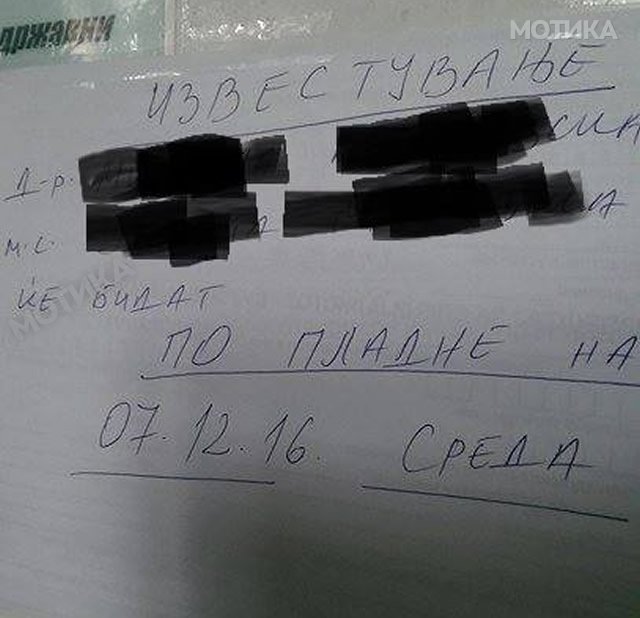 државни
МОТИКА
ИЗВЕСТУВАЊЕ
Д-р.
М.С.
МОТИКА
ЌЕ БИДАТ
ПО ПЛАДНЕ НА
07.12.16. СРЕДА